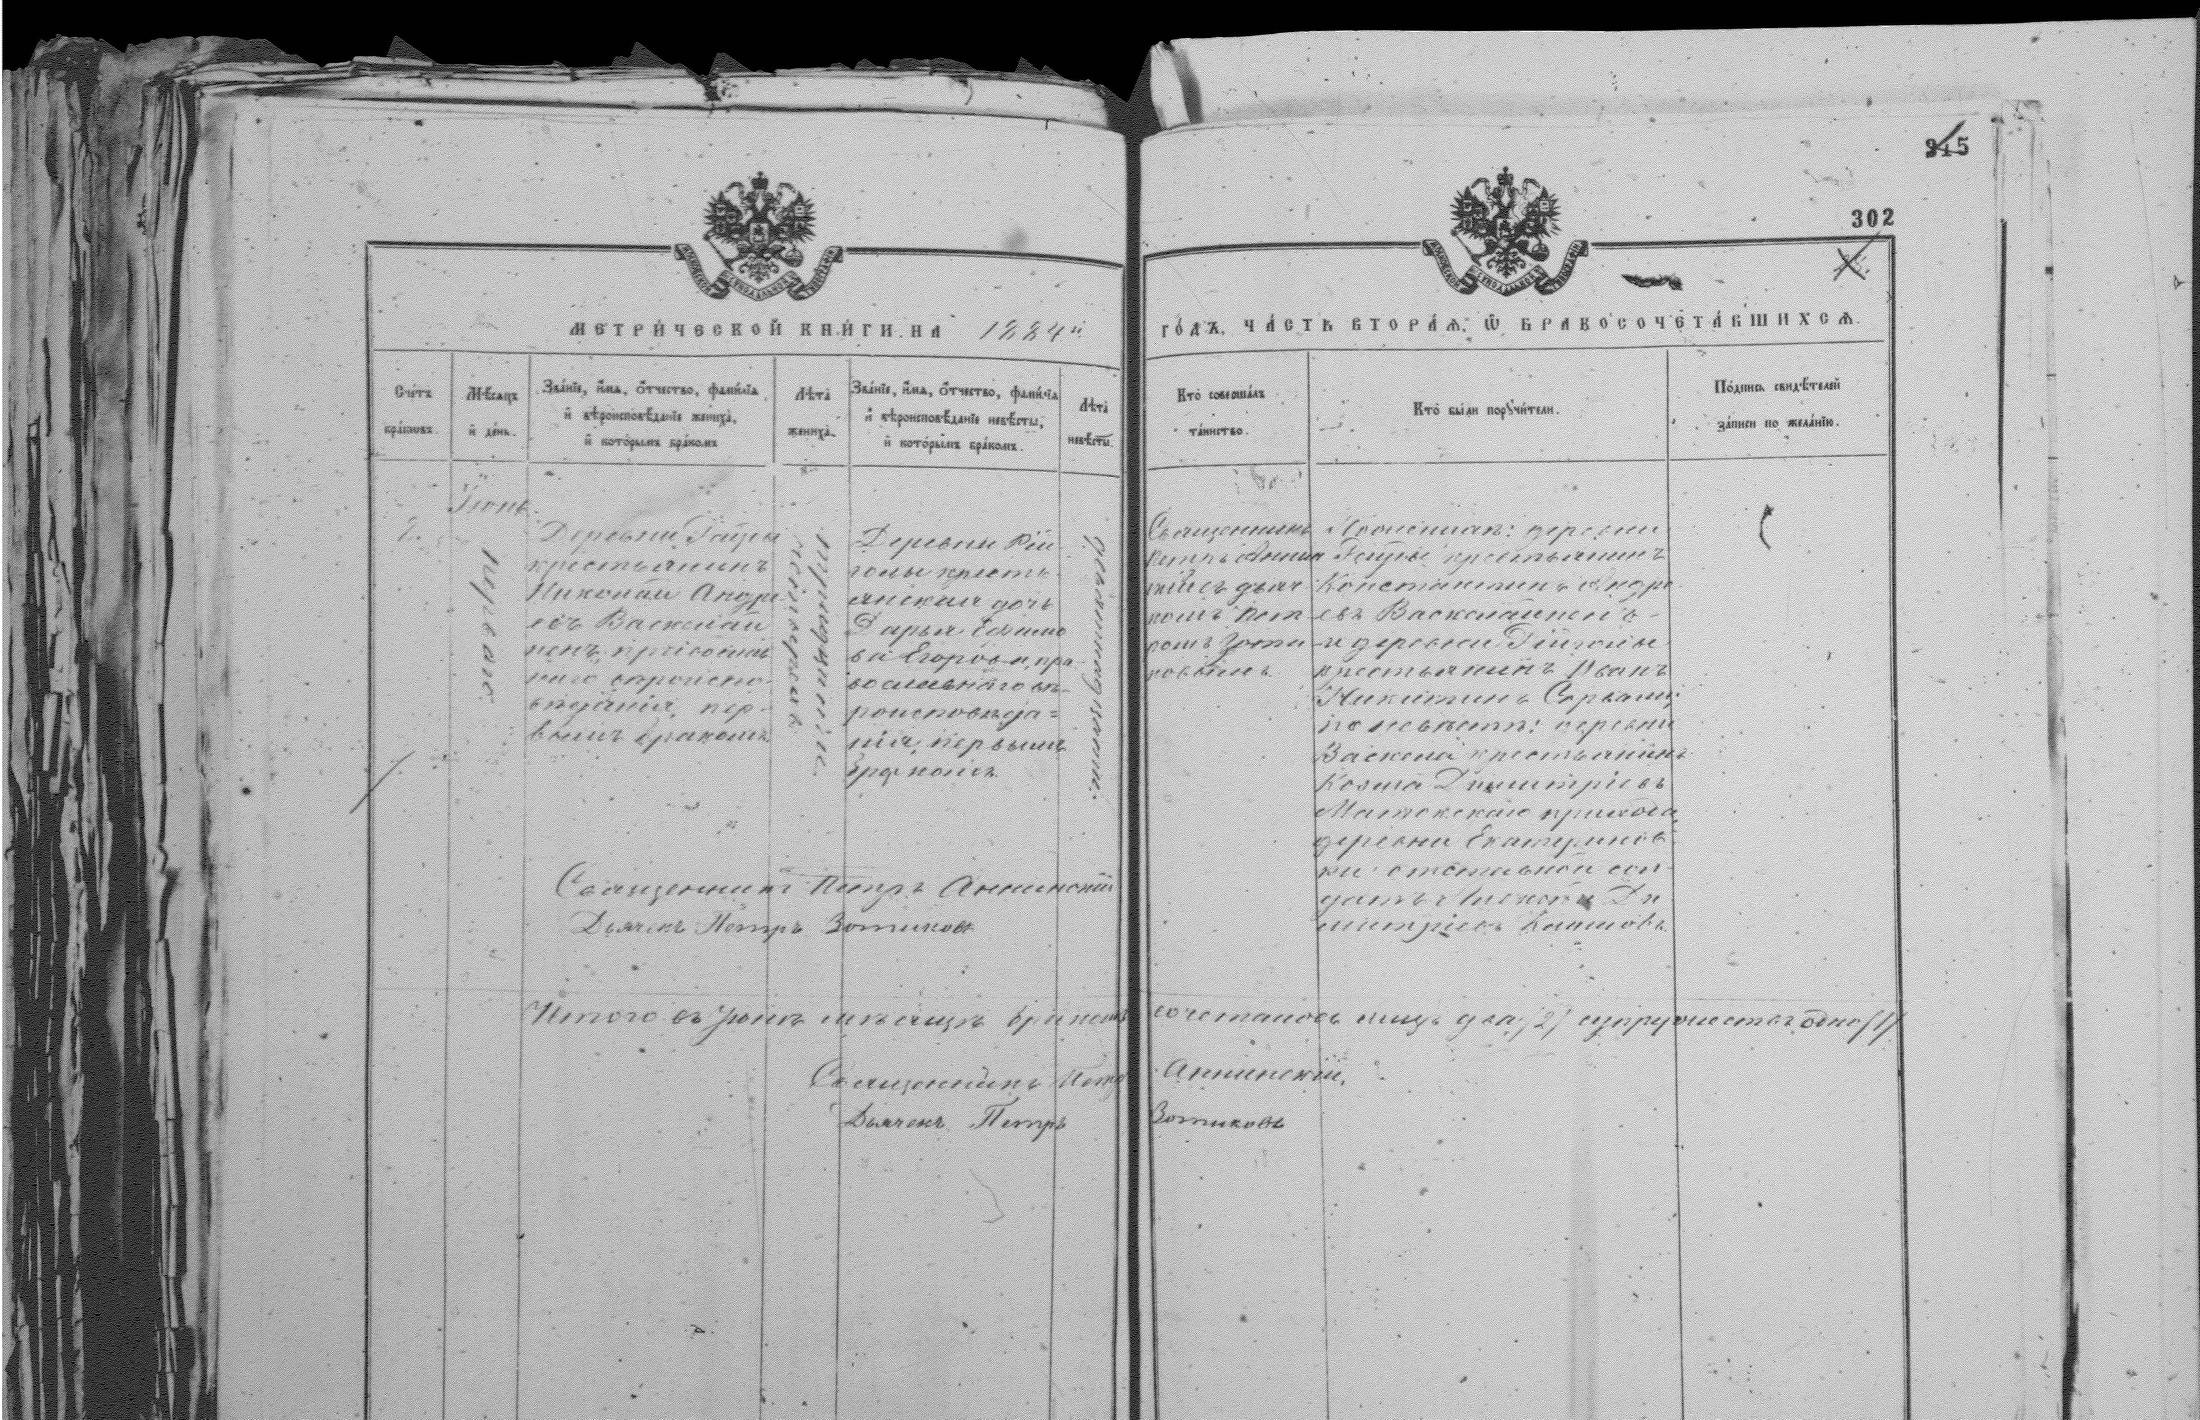 302
МЕТРИ́ЧЕСКОЙ КНИ́ГИ НА 1884й
ГО́ДЪ, ЧА́СТЬ ВТОРА́Ѧ, Ѿ БРАКОСОЧЕТА́ВШИХСѦ.
Сче́тъ
бра́ковъ.
Мѣ́сѧцъ
и҆ де́нь.
Зва́нїе, и҆́мѧ, ѻ҆́тчество, фами́лїѧ
и҆ вѣроисповѣ́данїе жениха̀,
и҆ кото́рымъ бра́комъ
Лѣ́та
жениха̀.
Зва́нїе, и҆́мѧ, ѻ҆́тчество, фами́лїѧ
и҆ вѣроисповѣ́данїе невѣ́сты,
и҆ кото́рымъ бра́комъ.
Лѣ́та
невѣ́сты.
Кто̀ соверша́лъ
та́инство.
Кто̀ бы́ли порꙋчи́тели.
По́дпись свидѣ́телей
за́писи по жела́нїю.
Іюнь.
2.
перваго
Деревни
крестьянинъ
Николай Андре
евъ Васкелай
ненъ, православ
наго вѣроиспо-
вѣданія, пер-
вымъ бракомъ.
тридцати
четырехъ
Деревни
голы кресть-
янская дочь
Дарья Ефимо
ва Егорова, пра-
вославнаго вѣ-
роисповѣда=
нія, первымъ
бракомъ
девятнадцати.
Священникъ
Петръ Аннин
скій съ дьяч
комъ Пет
ромъ Зоти
ковымъ
По женихѣ: деревни
крестьянинъ
Константинъ Андре
евъ Васкелайненъ
и деревни
крестьянинъ Иванъ
Никитинъ
по невѣстѣ: деревни
Васкела крестьянинъ
Козма Димитріевъ
Матокскаго прихода,
деревни Екатеринов
ки отставной сол-
датъ Алексѣй Ди
митріевъ
Священникъ Петръ Аннинскій
Дьячекъ Петръ Зотиковъ
Итого въ Іюнѣ мѣсяцѣ бракомъ сочеталось лицъ два /2/ супружествъ одно /1/
Священникъ Петръ Аннинскій,
Дьячекъ Петръ Зотиковъ